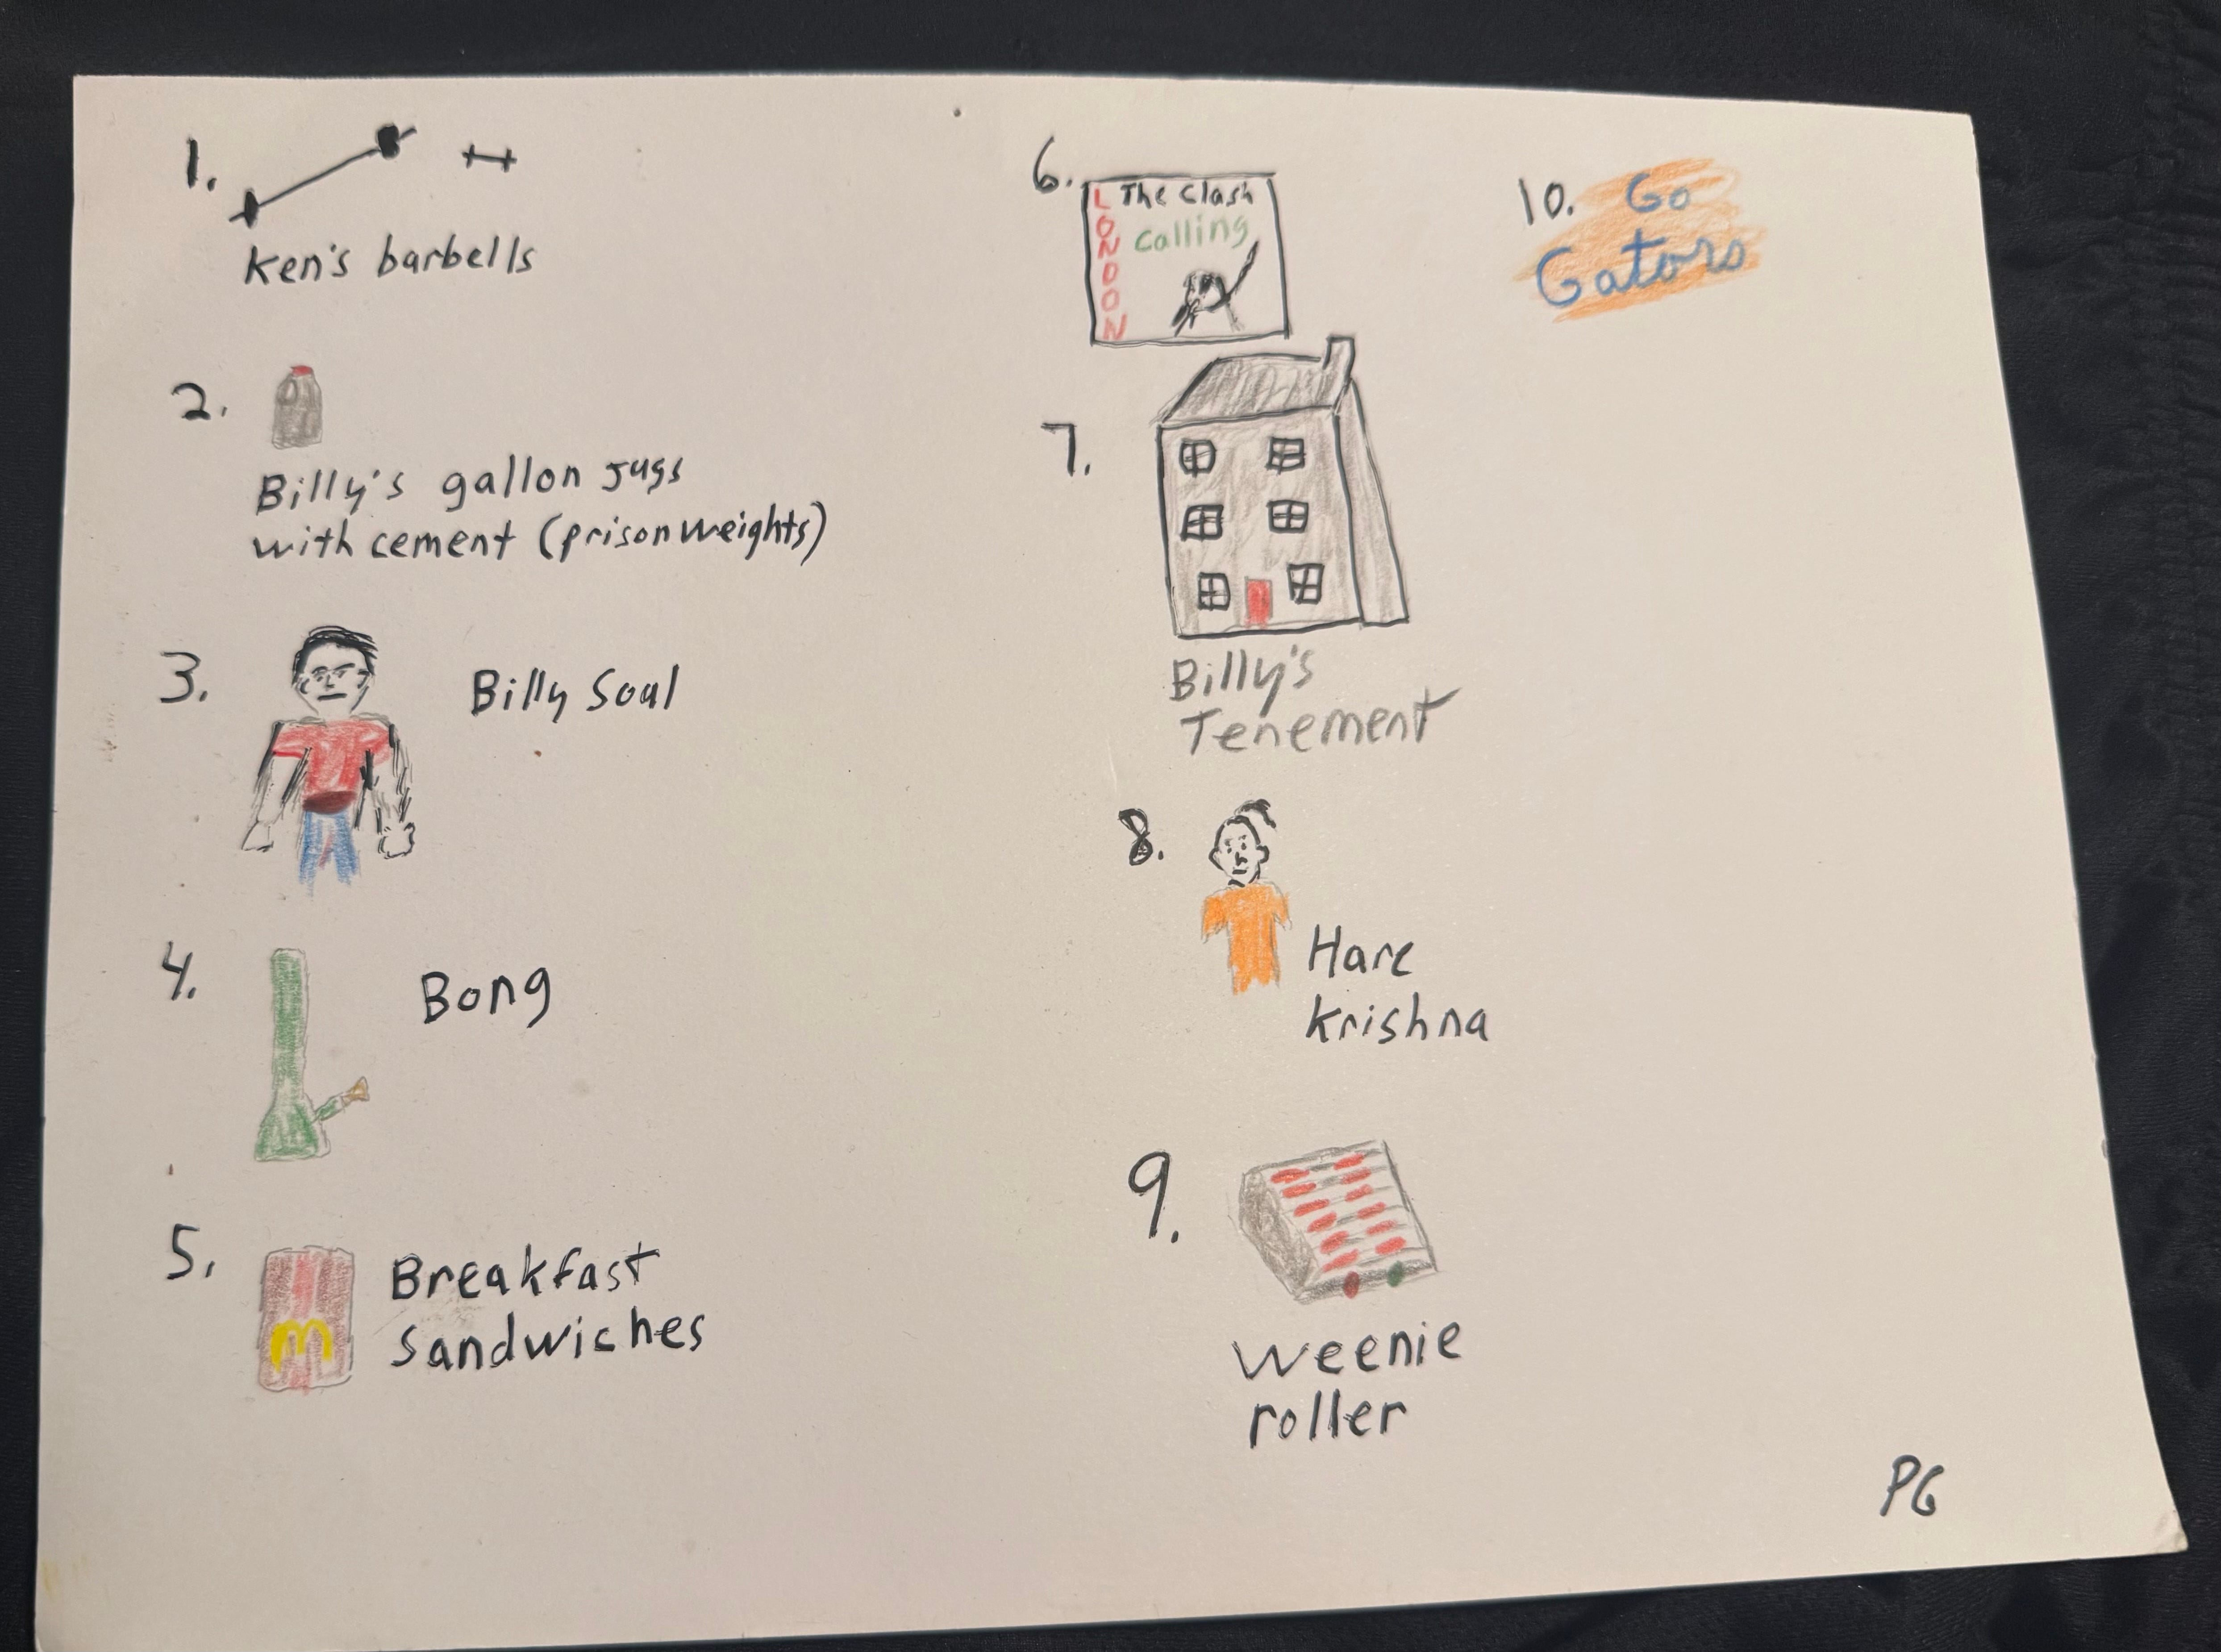 1.
Ken's barbells
2.
Billy's gallon Jugs
with cement (prison weights)
3. Billy Soul
4. Bong
5. Breakfast
Sandwiches
M
6.
The Clash
LONDON
Calling
7.
Billy's
Tenement
8.
Hare
Krishna
9.
Weenie
roller
10. Go
Gators
PG